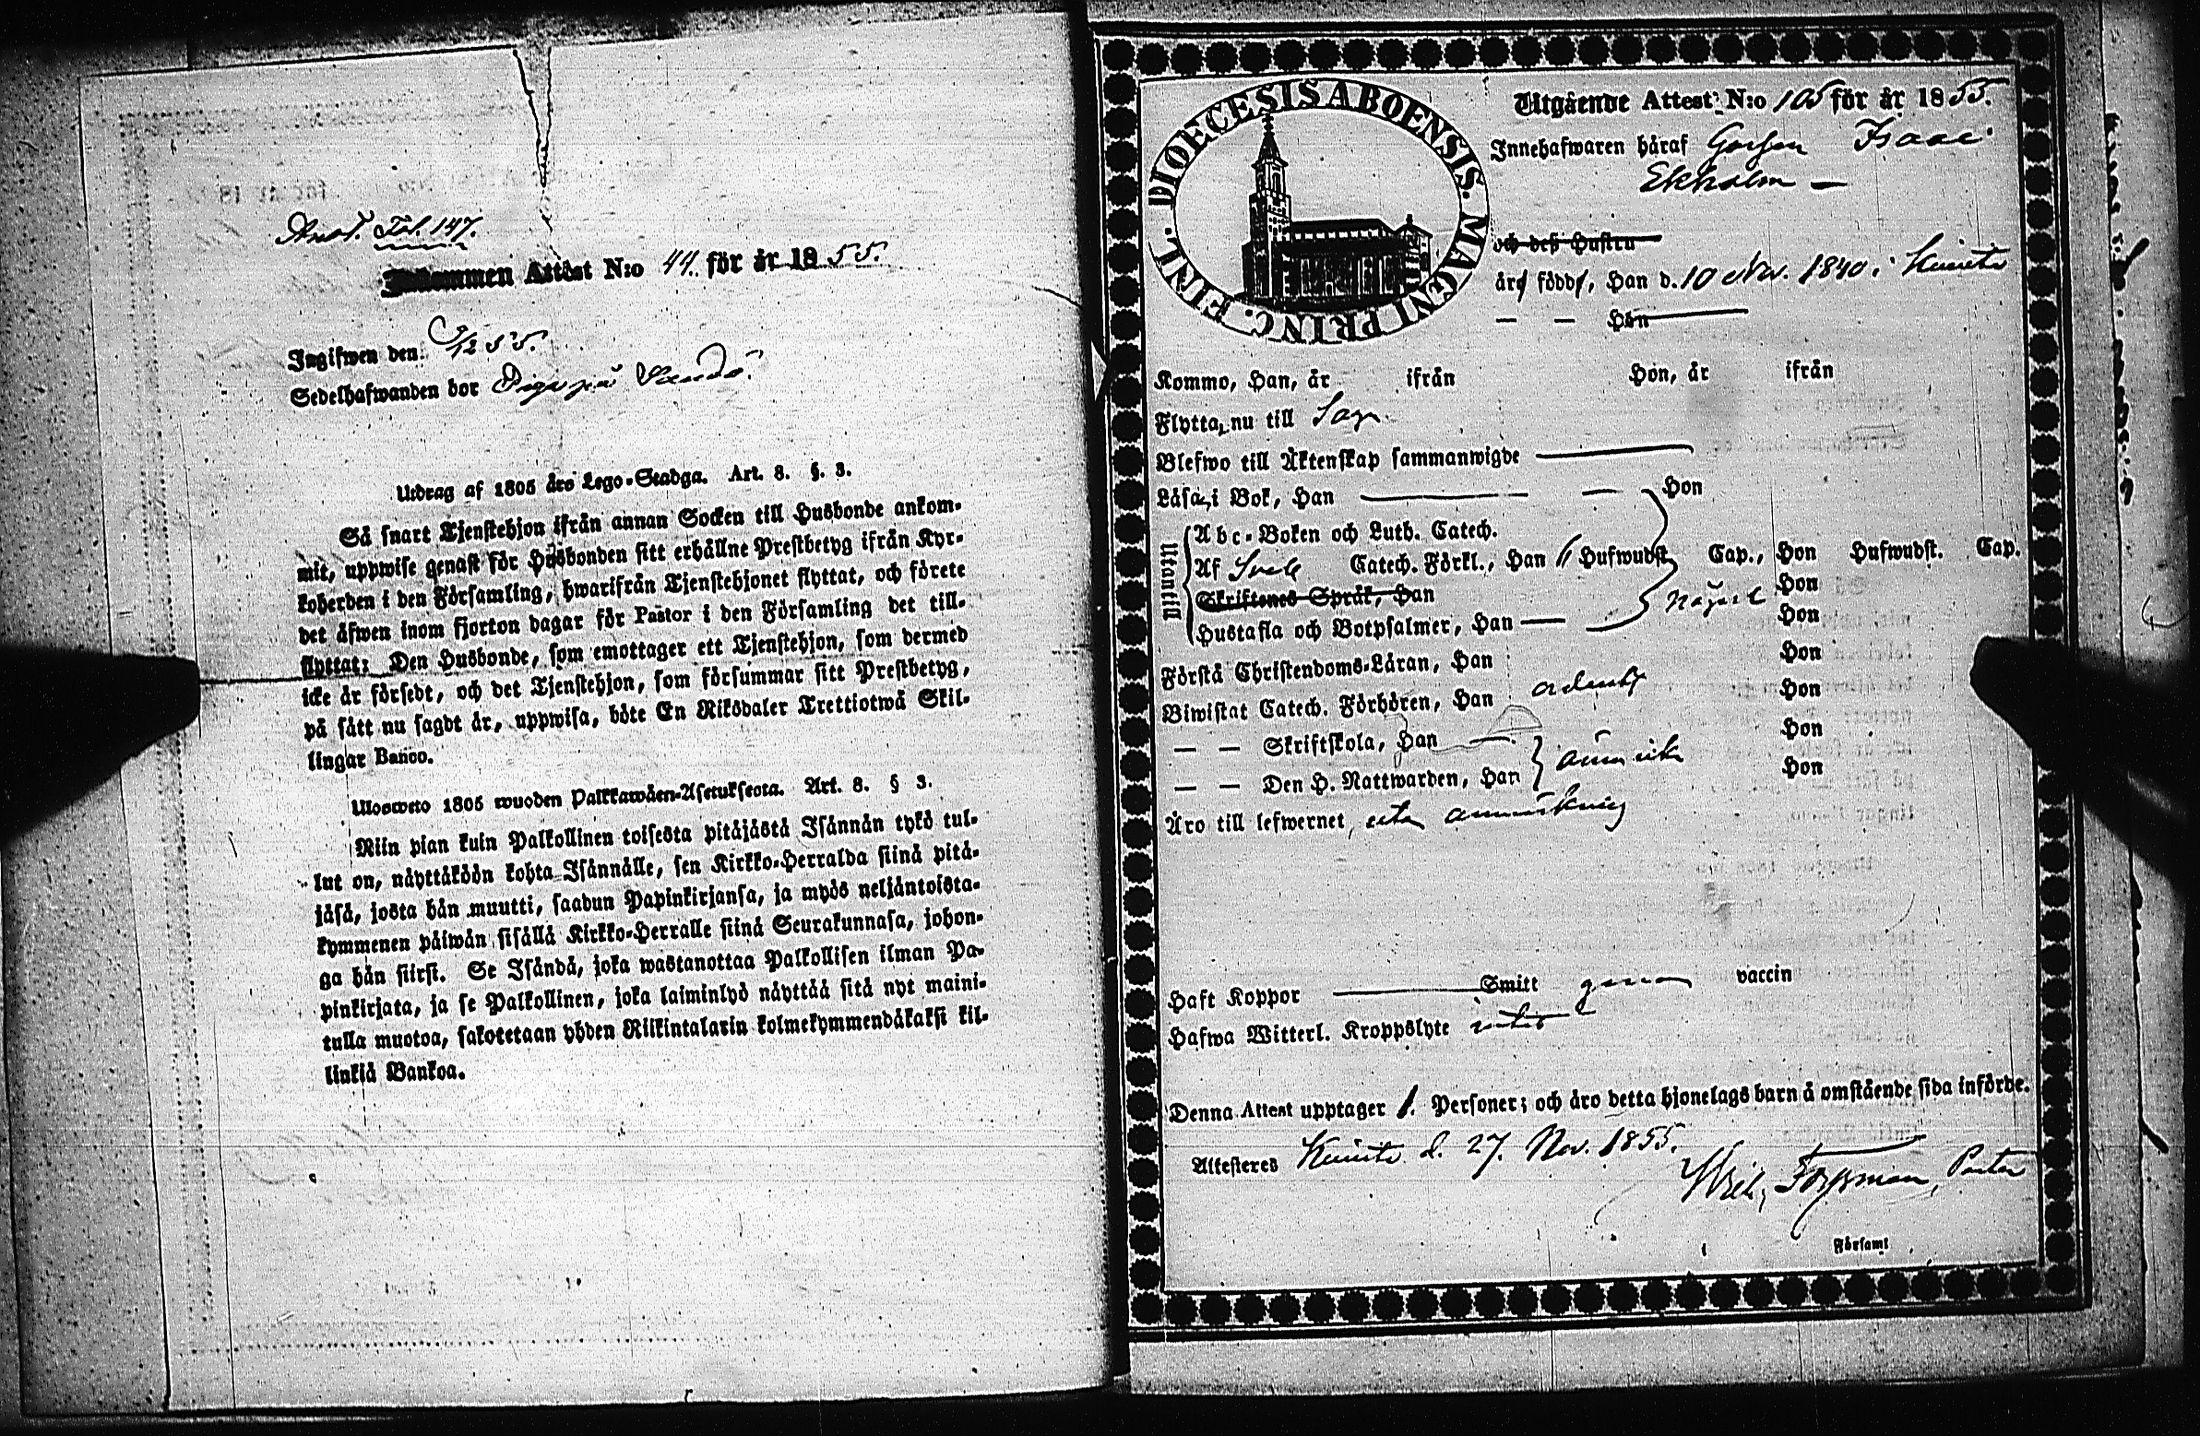 Anot. Fol. 147.
Inkommen Attest N:o 44. för år 1855.
Ingifwen den
Sedelhafwanden bor Piga på Sandö.
Utdrag af 1805 års Lego-Stadga. Art. 8. §. 3.
Så snart Tjenstehjon ifrån annan Socken till Husbonde ankom-
mit, uppwise genast för Husbonden sitt erhållne Prestbetyg ifrån Kyr-
koherden i den Församling, hwarifrån Tjenstehjonet flyttat, och förete
det äfwen inom fjorton dagar för Pastor i den Församling det till-
flyttat; Den Husbonde, som emottager ett Tjenstehjon, som dermed
icke är försedt, och det Tjenstehjon, som försummar sitt Prestbetyg,
på sätt nu sagdt är, uppwisa, böte En Riksdaler Trettiotwå Skil-
lingar Banco.
Ulosweto 1805 wuoden Palkkawäen-Asetuksesta. Art. 8. § 3.
Niin pian kuin Palkollinen toisesta pitäjästä Isännän tykö tul-
lut on, näyttäköön kohta Isännälle, sen Kirkko-Herralda siinä pitä-
jäsä, josta hän muutti, saadun Papinkirjansa, ja myös neljäntoista-
kymmenen päiwän sisällä Kirkko-Herralle siinä Seurakunnasa, johon-
ga hän siirsi. Se Isändä, joka wastanottaa Palkollisen ilman Pa-
pinkirjata, ja se Palkollinen, joka laiminlyö näyttää sitä nyt maini-
tulla muotoa, sakotetaan yhden Riikintalarin kolmekymmendäkaksi kil-
linkiä Bankoa.
DIOECESIS ABOENSIS. MAGNI PRINC. FINL.
Utgående Attest N:o 105 för år 1855.
Innehafwaren häraf Gossen Isaac
Ekholm —
och dess Hustru
äro födde, Han d. 10 Nov. 1840 i Kimito
— — Hon
Kommo, Han, år ifrån Hon, år ifrån
Flytta, nu till Sagu
Blefwo till Äktenskap sammanwigde
Läsa, i Bok, Han — Hon
Utantill
Abc-Boken och Luth. Catech.
Af Sveb Catech. Förkl., Han 6 Hufwudst. Cap., Hon Hufwudst. Cap.
Skriftenes Språk, Han Hon
Hustafla och Botpsalmer, Han — någre Hon
Förstå Christendoms-Läran, Han Hon
Biwistat Catech. Förhören, Han ordentl. Hon
— — Skriftskola, Han — Hon
— — Den H. Nattwarden, Han ännu icke Hon
Äro till lefwernet, utan anmärkning
Haft Koppor Smitt genom vaccin
Hafwa Witterl. Kroppslyte intet
Denna Attest upptager 1. Personer; och äro detta hjonelags barn å omstående sida införde.
Attesteres Kimito d. 27. Nov. 1855.
Wilh. Forsman, Pastor
Församl